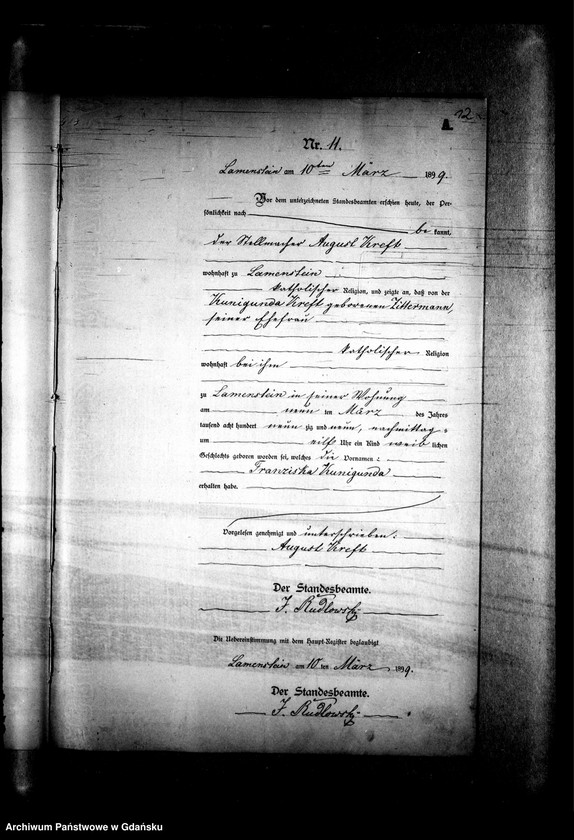 12
A.
Nr. 11.
Lamenstein am 10ten März 1899.
Vor dem unterzeichneten Standesbeamten erschien heute, der Per-
sönlichkeit nach
be kannt,
der Stellmacher August Kreft
wohnhaft zu Lamenstein
katholischer Religion, und zeigte an, daß von der
Kunigunda Kreft geborenen Zittermann,
seiner Ehefrau
katholischer Religion
wohnhaft bei ihm
zu Lamenstein in seiner Wohnung
am neun ten März des Jahres
tausend acht hundert neun zig und neun, nachmittag-
um eilf Uhr ein Kind weib lichen
Geschlechts geboren worden sei, welches die Vornamen:
Franziska Kunigunda
erhalten habe.
Vorgelesen genehmigt und unterschrieben:
August Kreft
Der Standesbeamte.
J. Rudlowski
Die Uebereinstimmung mit dem Haupt-Register beglaubigt
Lamenstein am 10 ten März 1899.
Der Standesbeamte.
J. Rudlowski
Archiwum Państwowe w Gdańsku